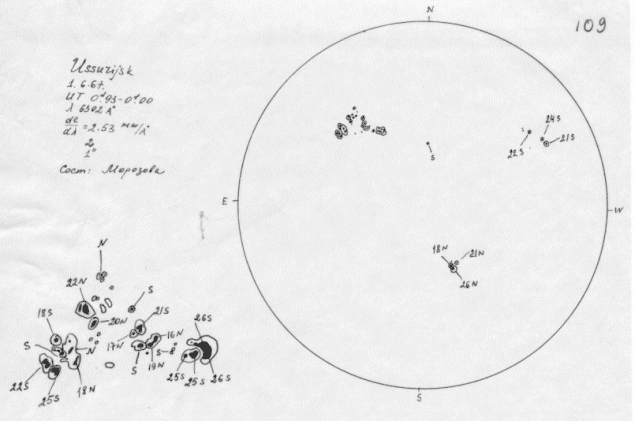 109
Ussurijsk
1. 6. 67.
UT 0ᵈ.93-0ᵈ.00
λ 6302 Å
dl/dλ = 2.53 mm/Å
2
1"
Сост: Морозова
N
E
W
S
24S
21S
22S
S
18N
21N
26N
N
22N
20N
S
21S
17N
16N
18S
S
N
S
19N
S
26S
22S
25S
18N
25S
25S
26S